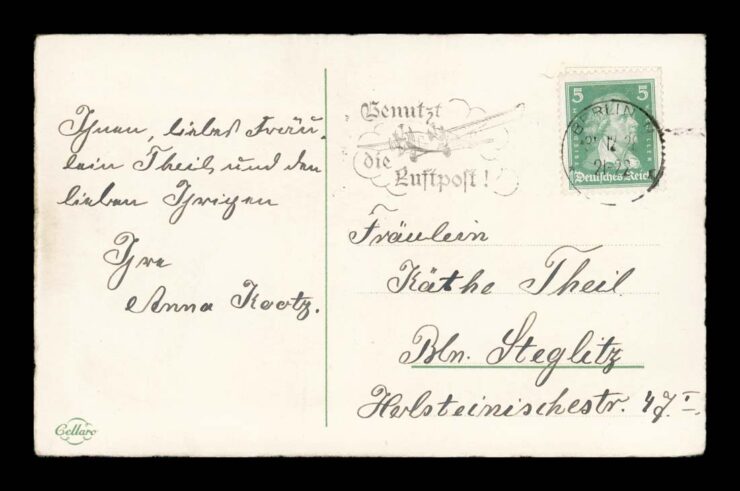 Ihnen, liebes Fräu-
lein Theil und den
lieben Ihrigen
Ihre
Anna Kootz.
Cellaro
Benutzt
die
Luftpost!
5 5
Deutsches Reich
BERLIN
Fräulein
Käthe Theil
Bln. Steglitz
Holsteinischestr. 47 I